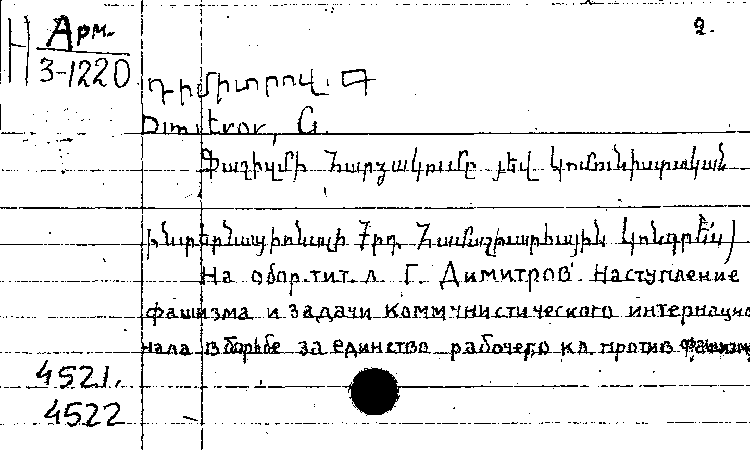 2.
Н Арм.
3-1220
Դիմիտրով. Գ
Dimitrov, G.
Ֆաշիզմի հարձակումը յեվ կոմունիստական
ինտերնացիոնալի 7րդ. համաշխարհային կոնգրես)
На обор. тит. л. Г. Димитров. Наступление
фашизма и задачи коммунистического интернацио
нала в борьбе за единство рабочего кл. против фашизма
4521.
4522